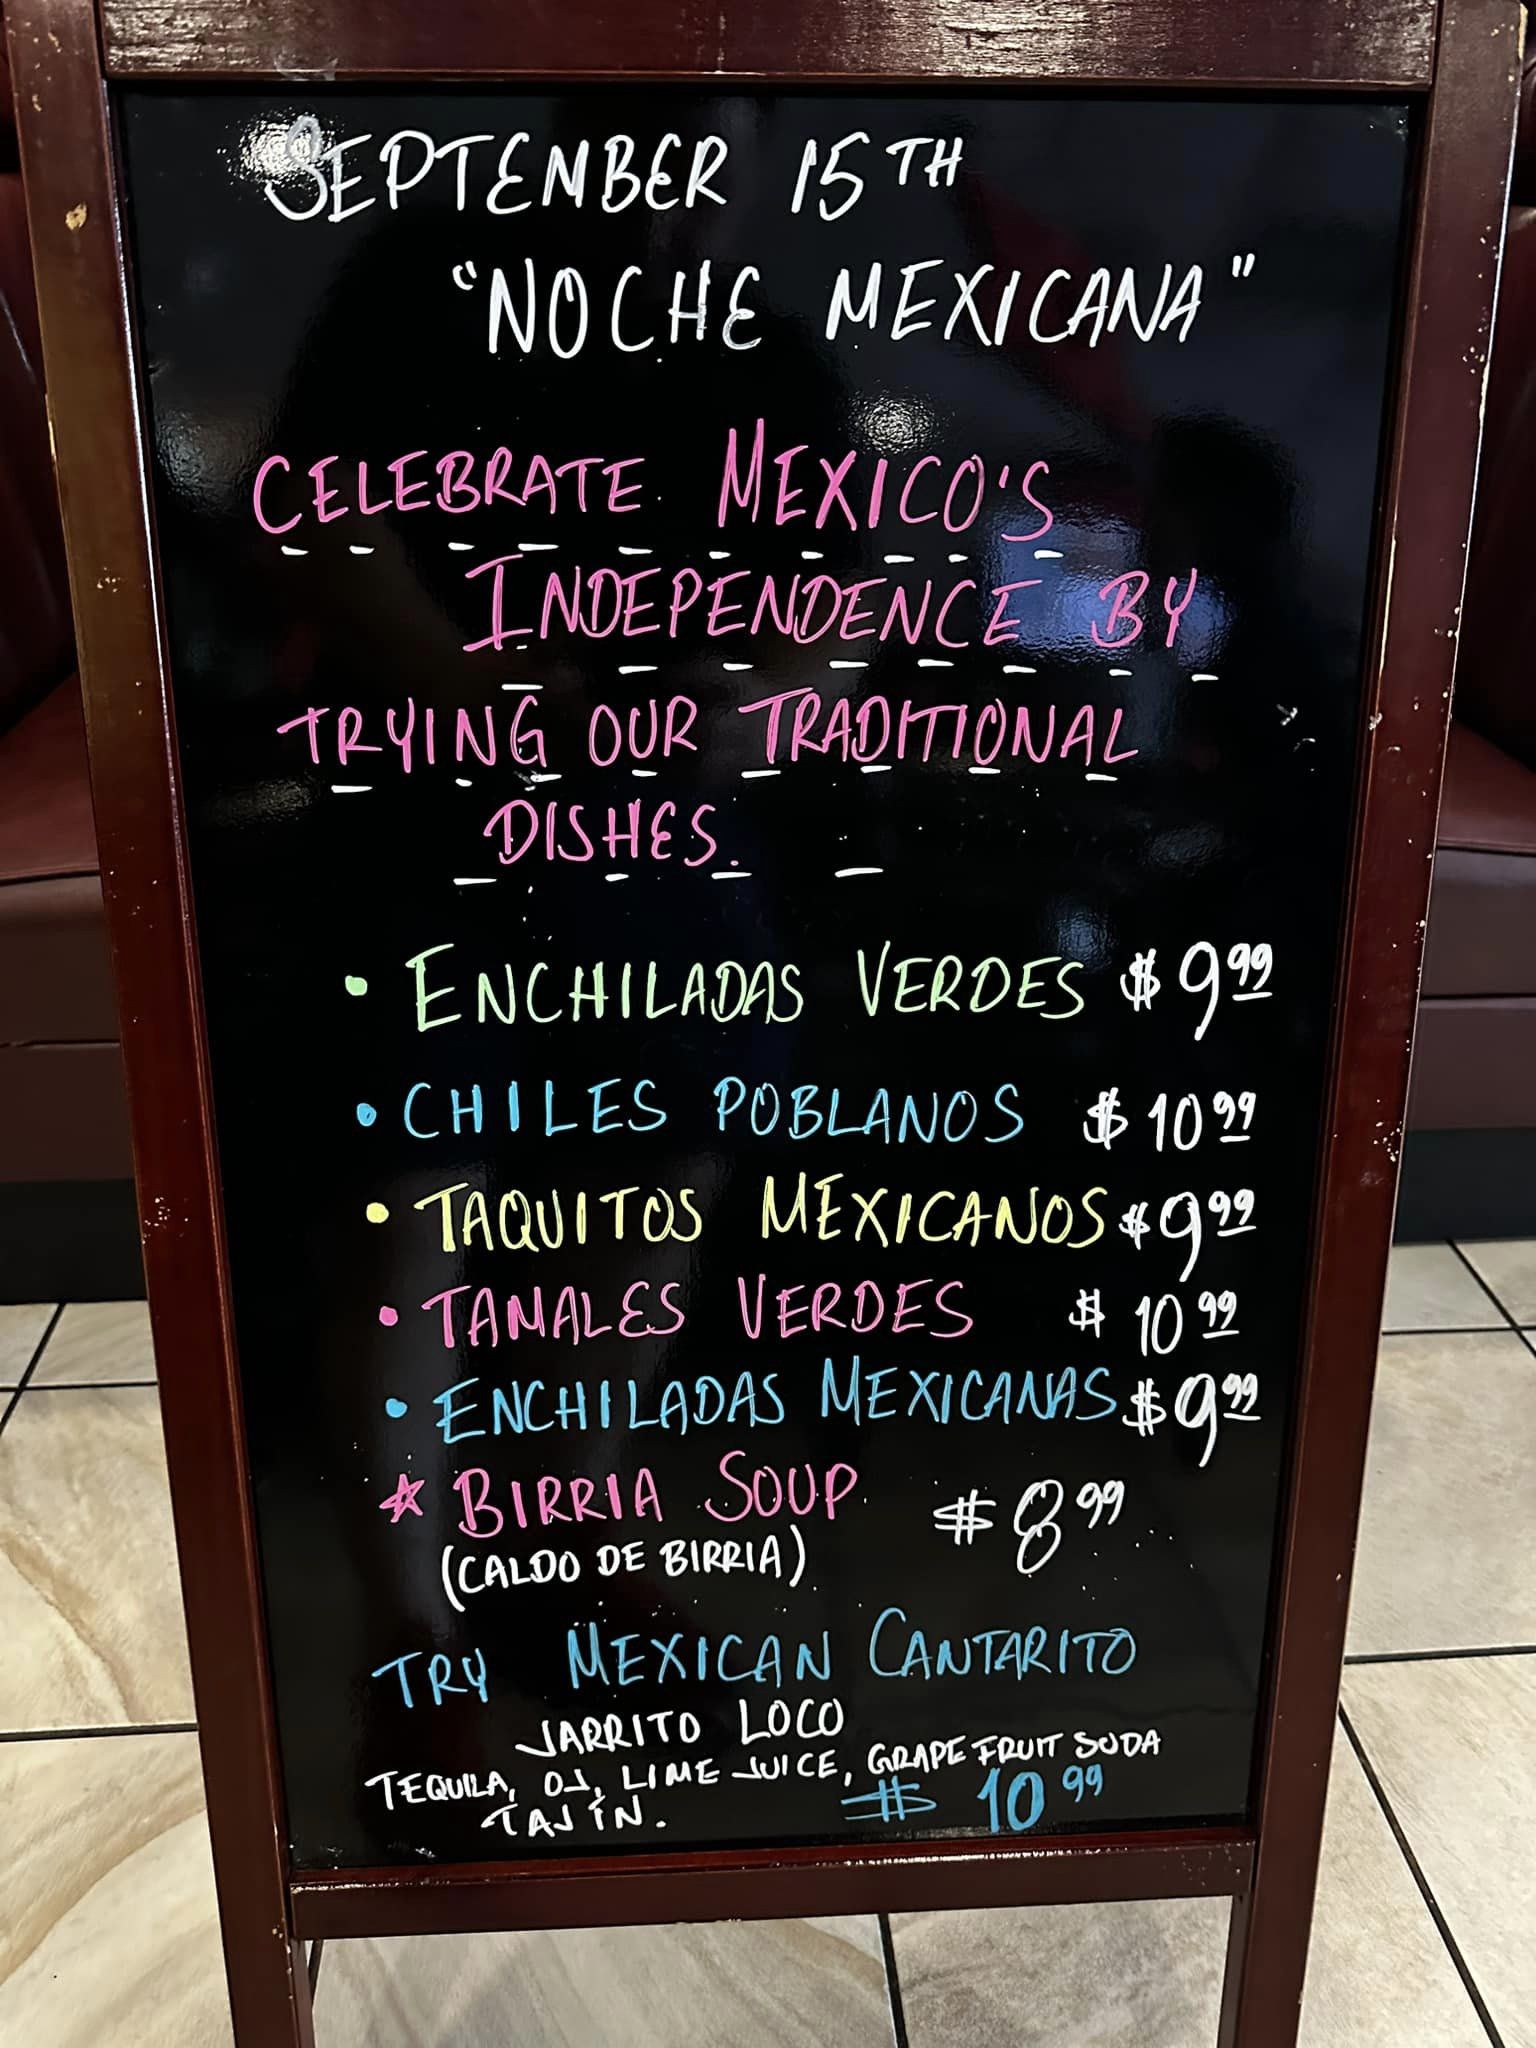 SEPTEMBER 15TH
"NOCHE MEXICANA"
CELEBRATE MEXICO'S
INDEPENDENCE BY
TRYING OUR TRADITIONAL
DISHES.
• ENCHILADAS VERDES $9.99
• CHILES POBLANOS $10.99
• TAQUITOS MEXICANOS $9.99
• TAMALES VERDES $10.99
• ENCHILADAS MEXICANAS $9.99
☆ BIRRIA SOUP $8.99
(CALDO DE BIRRIA)
TRY MEXICAN CANTARITO
JARRITO LOCO
TEQUILA, OJ, LIME JUICE, GRAPEFRUIT SODA
TAJÍN. $10.99